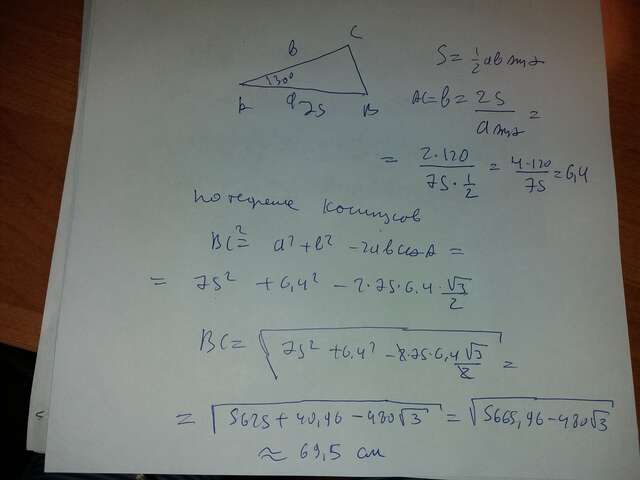 S = ½ ab sin α
AC = b = 2S / (a sin α) =
= 2·120 / (75·½) = 4·120 / 75 = 6,4
C
b
30°
A
a 75
B
по теореме косинусов
BC² = a² + b² - 2ab cos α =
= 75² + 6,4² - 2·75·6,4·√3/2
BC = √(75² + 6,4² - 2·75·6,4 √3/2) =
= √(5625 + 40,96 - 480√3) = √(5665,96 - 480√3)
≈ 69,5 см